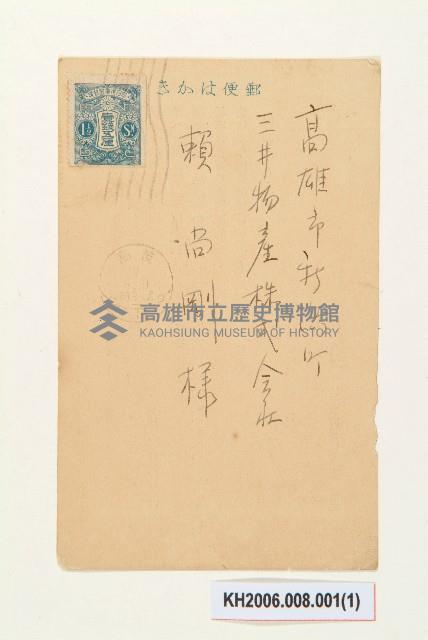 郵便はがき
高雄市新濱町
三井物產株式会社
賴尚剛様
壹錢五厘
1½ Sn.
高雄市立歷史博物館
KAOHSIUNG MUSEUM OF HISTORY
KH2006.008.001(1)